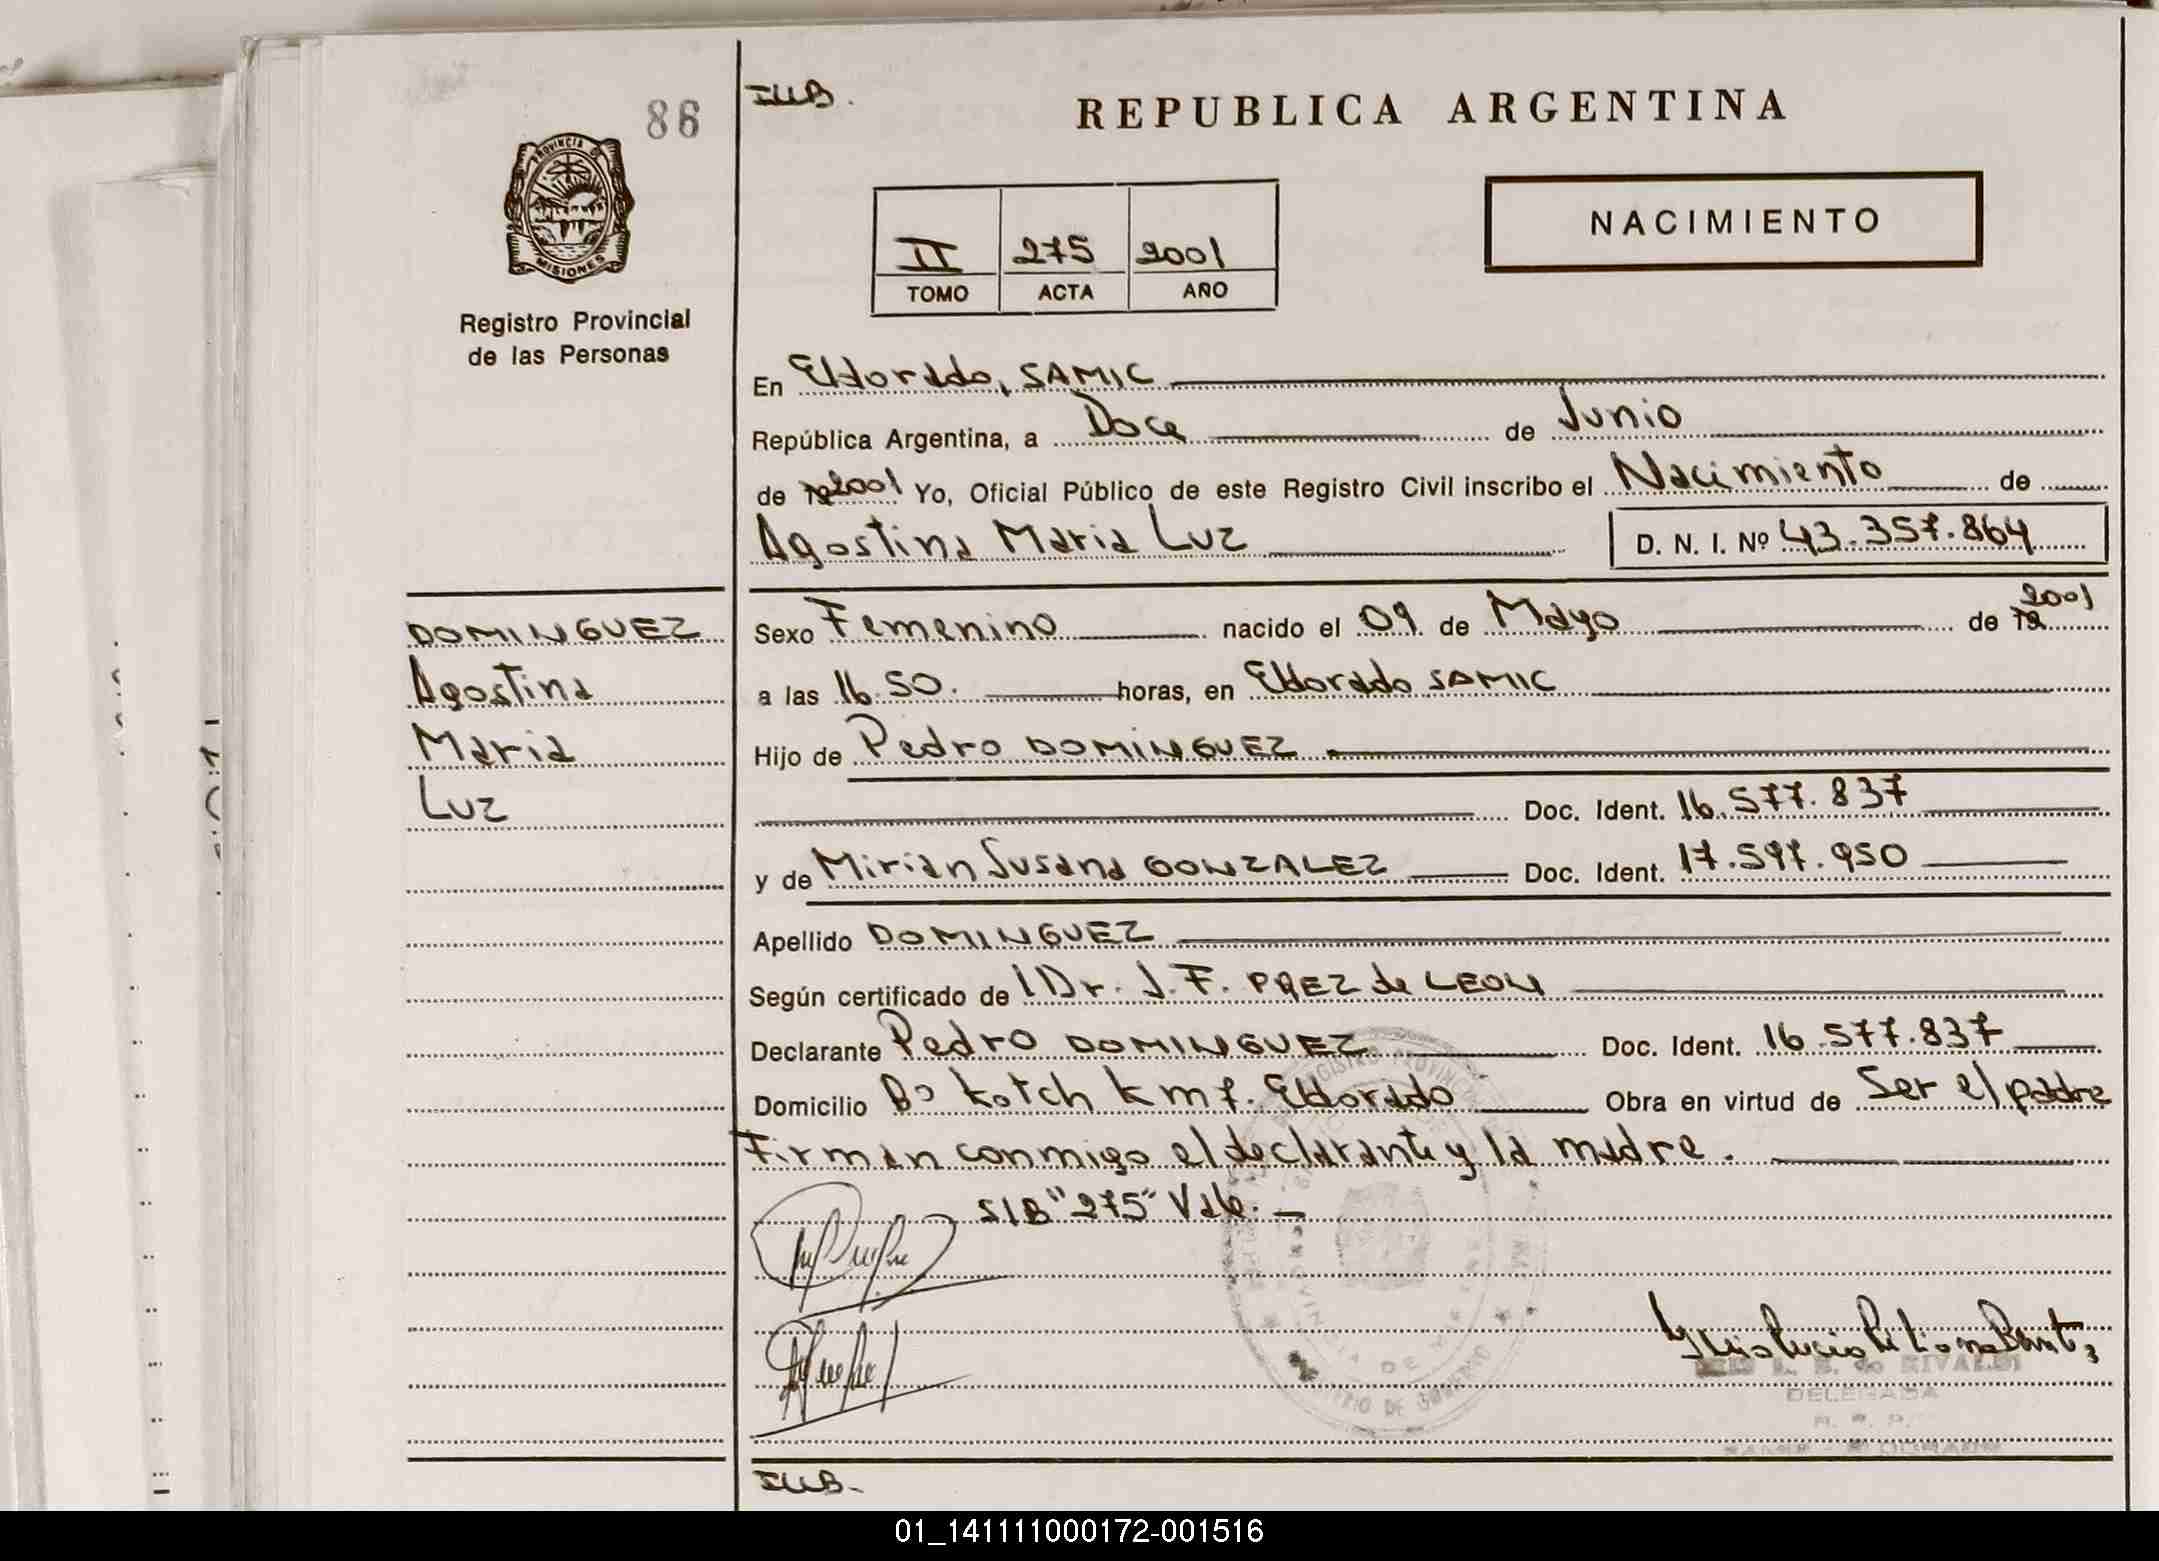 86
PROVINCIA DE
MISIONES
Registro Provincial
de las Personas
DOMINGUEZ
Agostina
Maria
Luz
REPUBLICA ARGENTINA
II 275 2001
TOMO ACTA AÑO
NACIMIENTO
En Eldorado, SAMIC
República Argentina, a Doce de Junio
de 2001 Yo, Oficial Público de este Registro Civil inscribo el Nacimiento de
Agostina Maria Luz D. N. I. Nº 43.357.864
Sexo Femenino nacido el 09 de Mayo de 2001
a las 16.50. horas, en Eldorado SAMIC
Hijo de Pedro DOMINGUEZ
Doc. Ident. 16.577.837
y de Mirian Susana GONZALEZ Doc. Ident. 17.597.950
Apellido DOMINGUEZ
Según certificado de Dr. J. F. PAEZ de LEON
Declarante Pedro DOMINGUEZ Doc. Ident. 16.577.837
Domicilio Bº Kotch Km 7. Eldorado Obra en virtud de Ser el padre
Firman conmigo el declarante y la madre.
S/B "275" Vale.
RIVALDI
DELEGADA
01_141111000172-001516